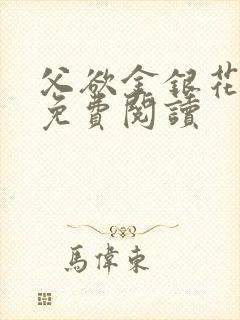 父欲金銀花
免費閱讀
馬偉東